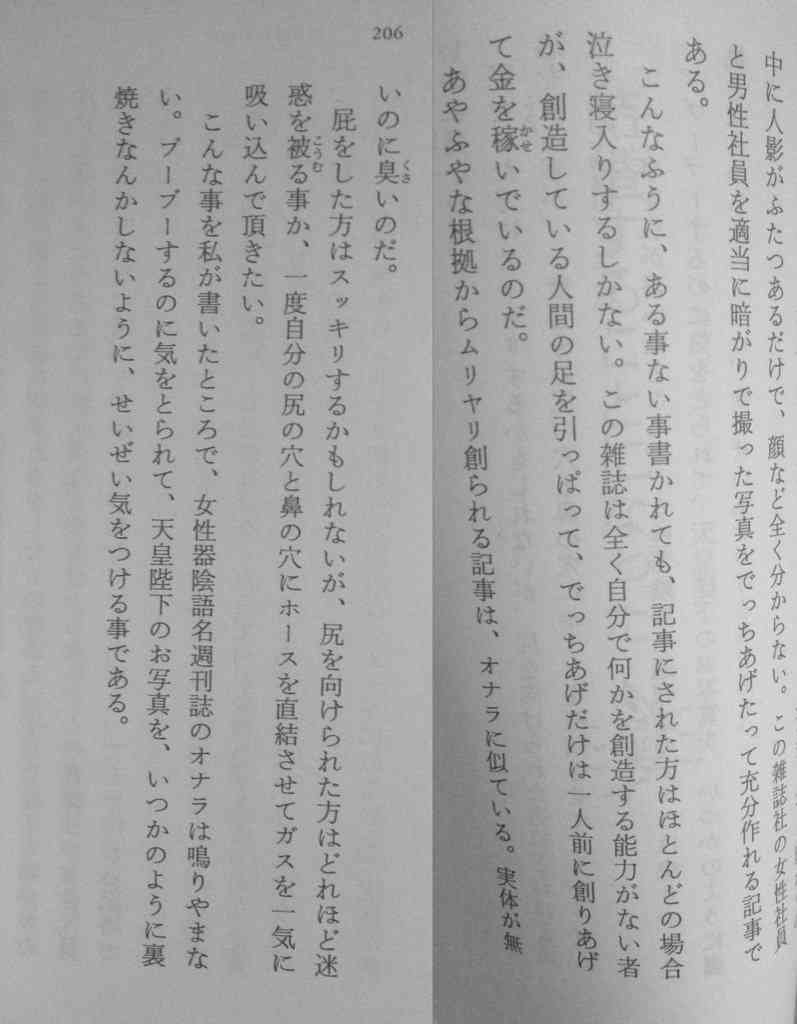 中に人影がふたつあるだけで、顔など全く分からない。この雑誌社の女性社員
と男性社員を適当に暗がりで撮った写真をでっちあげたって充分作れる記事で
ある。
こんなふうに、ある事ない事書かれても、記事にされた方はほとんどの場合
泣き寝入りするしかない。この雑誌は全く自分で何かを創造する能力がない者
が、創造している人間の足を引っぱって、でっちあげだけは一人前に創りあげ
て金を稼いでいるのだ。
かせ
あやふやな根拠からムリヤリ創られる記事は、オナラに似ている。実体が無
206
いのに臭いのだ。
くさ
屁をした方はスッキリするかもしれないが、尻を向けられた方はどれほど迷
惑を被る事か、一度自分の尻の穴と鼻の穴にホースを直結させてガスを一気に
こうむ
吸い込んで頂きたい。
こんな事を私が書いたところで、女性器陰語名週刊誌のオナラは鳴りやまな
い。ブーブーするのに気をとられて、天皇陛下のお写真を、いつかのように裏
焼きなんかしないように、せいぜい気をつける事である。